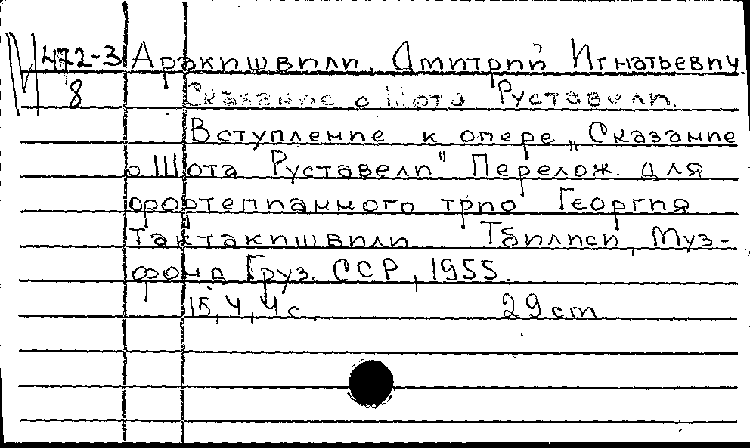 М 472-3 Аракишвили, Дмитрий Игнатьевич
8 Сказание о Шота Руставели.
Вступление к опере „Сказание
о Шота Руставели" Перелож. для
фортепианного трио Георгия
Тактакишвили Тбилиси, Муз-
фонд Груз. ССР, 1955.
15, 4, 4 с. 29 cm